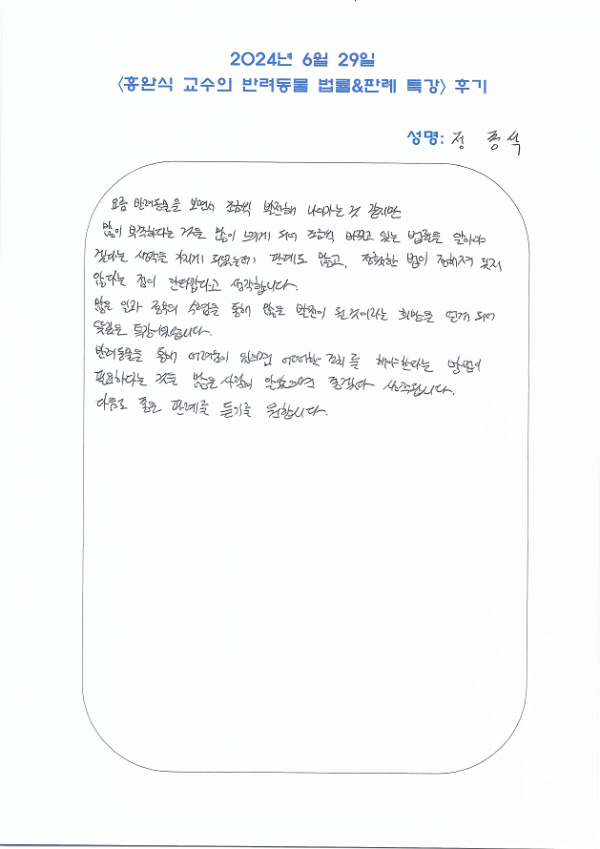 2024년 6월 29일
<홍완식 교수의 반려동물 법률&판례 특강> 후기
성명: 정 종식
요즘 반려동물을 보면서 조금씩 발전해 나아가는 것 같지만
많이 부족하다는 것을 많이 느끼게 되어 조금씩 바뀌고 있는 법률을 알아야
겠다는 생각을 가지게 되었는데, 판례도 많고, 정확한 법이 정해져 있지
않다는 점이 안타깝다고 생각합니다.
많은 수업을 통해 많은 발전이 될것이라는 희망을 되어
뜻깊은 특강이였습니다.
반려동물을 통해 어려움이 어떠한 조치를 해야한다는 방법이
필요하다는 것을 많은 사람이 알았으면 좋겠다 생각됩니다.
다음도 좋은 판례를 듣기를 원합니다.